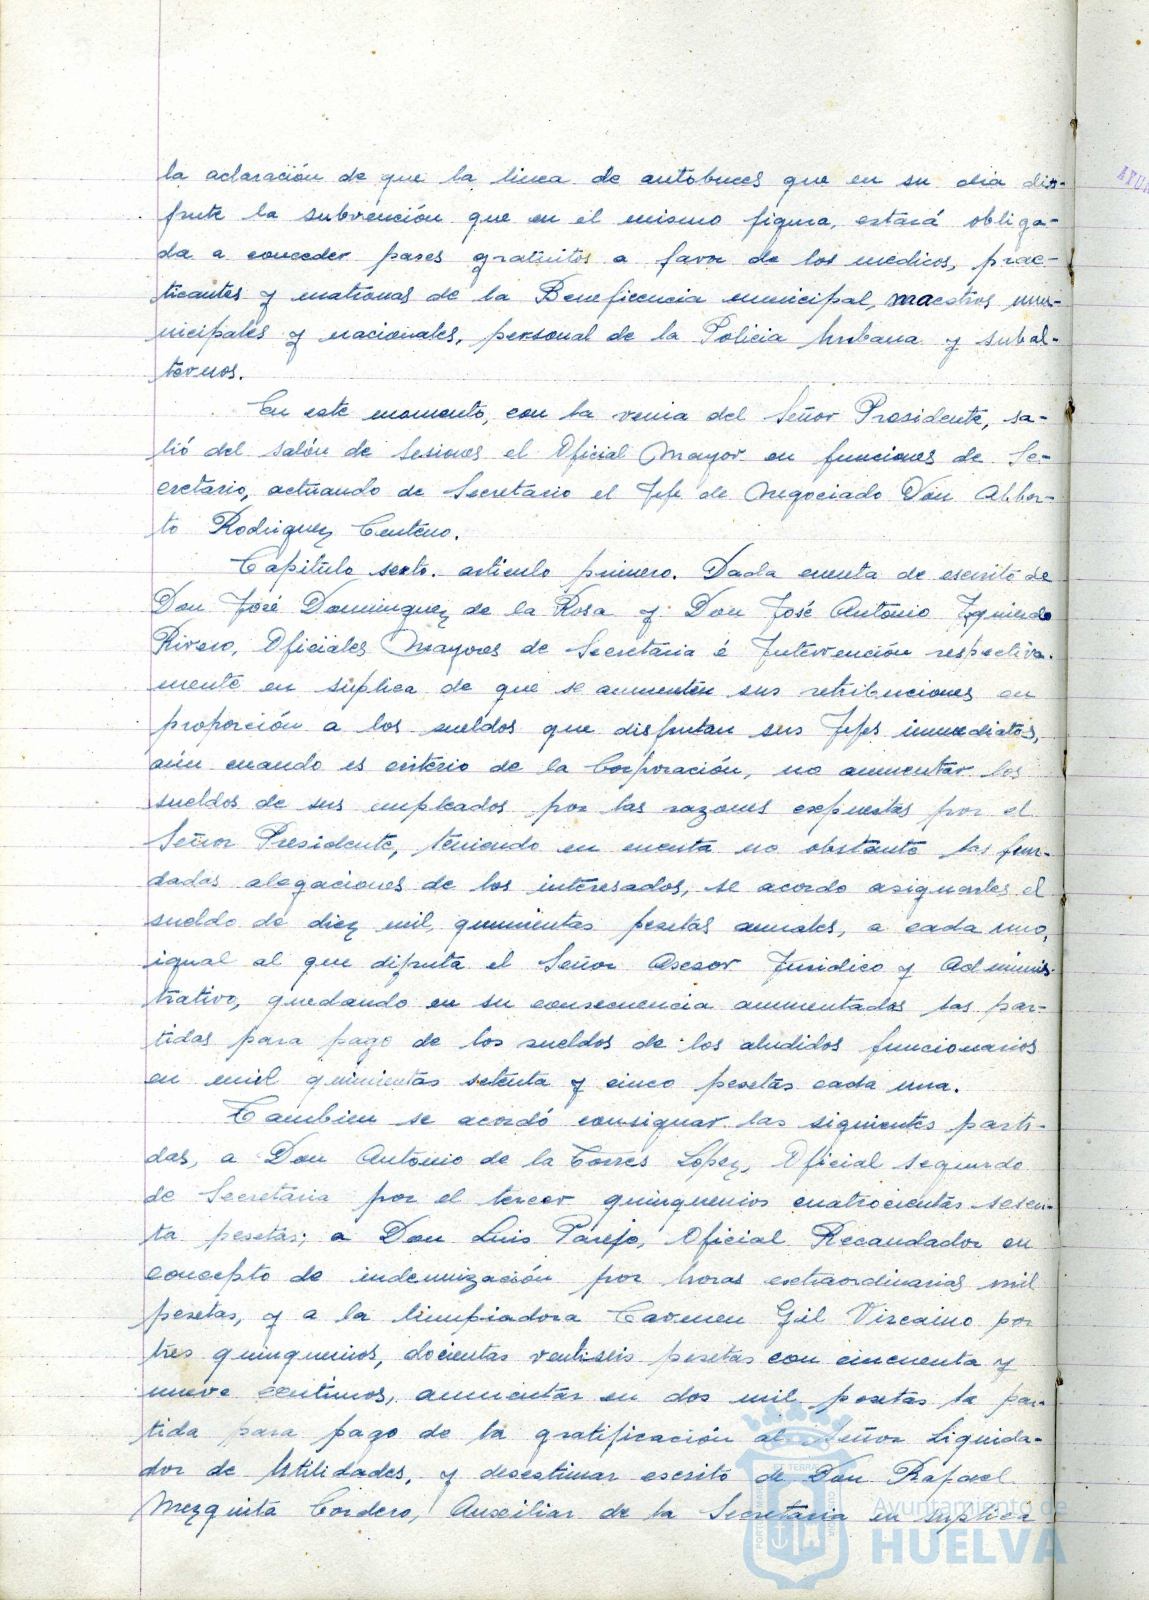 la aclaración de que la linea de autobuces que en su dia dis-
frute la subvención que en él mismo figura, estará obliga-
da a conceder pases gratuitos a favor de los medicos, prac-
ticantes y matronas de la Beneficencia municipal, maestros mu-
nicipales y nacionales, personal de la Policia Urbana y subal-
ternos.
En este momento, con la venia del Señor Presidente, sa-
lió del salón de sesiones el Oficial Mayor en funciones de Se-
cretario, actuando de Secretario el Jefe de Negociado Don Alber-
to Rodriguez Centeno.
Capitulo sexto. articulo primero. Dada cuenta de escrito de
Don José Dominguez de la Rosa y Don José Antonio Izquierdo
Rivero, Oficiales Mayores de Secretaria é Intervención respectiva-
mente en suplica de que se aumenten sus retribuciones en
proporción a los sueldos que disfrutan sus Jefes inmediatos,
aún cuando es criterio de la Corporación, no aumentar los
sueldos de sus empleados por las razones expuestas por el
Señor Presidente, teniendo en cuenta no obstante las fun-
dadas alegaciones de los interesados, se acordo asignarles el
sueldo de diez mil quinientas pesetas anuales, a cada uno,
igual al que difruta el Señor Asesor Juridico y Adminis-
trativo, quedando en su consecuencia aumentadas las par-
tidas para pago de los sueldos de los aludidos funcionarios
en mil quinientas setenta y cinco pesetas cada una.
Tambien se acordó consignar las siguientes parti-
das, a Don Antonio de la Torres López, Oficial segundo
de Secretaria por el tercer quinquenios cuatrocientas sesen-
ta pesetas; a Don Luis Parejo, Oficial Recaudador en
concepto de indemnización por horas extraordinarias mil
pesetas, y a la limpiadora Carmen Gil Viscaino por
tres quinquenios, docientas ventiseis pesetas con cincuenta y
nueve centimos, aumentar en dos mil pesetas la par-
tida para pago de la gratificación al Señor Liquida-
dor de Utilidades, y desestimar escrito de Don Rafael
Mezquita Cordero, Auxiliar de la Secretaria en suplica
Ayuntamiento de
HUELVA